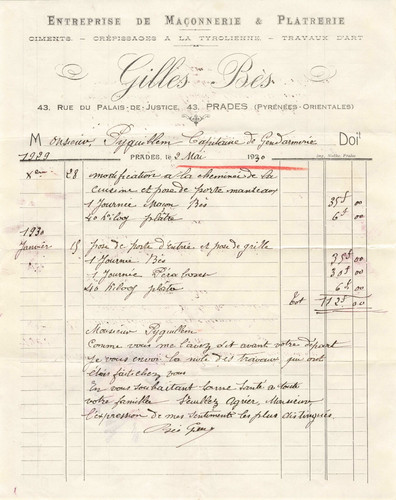 ENTREPRISE DE MAÇONNERIE & PLATRERIE
CIMENTS - CRÉPISSAGES A LA TYROLIENNE - TRAVAUX D'ART
Gilles Bès
43, RUE DU PALAIS-DE-JUSTICE, 43, PRADES (PYRÉNÉES-ORIENTALES)
Monsieur Pyguillem Capitaine de Gendarmerie Doit
1929 PRADES, LE 2 Mai 1930
Xbre 28 modification a la cheminée de la
cuisine et pose de porte manteaux
1 Journée Maçon Bès 35f 00
40 kilog plâtre 6f 00
1930
Janvier 15 pose de porte d'entrée et pose de grille
1 Journée Bès 35f 00
1 Journée 30f 00
40 kilog plâtre 6f 00
tot 112f 00
Monsieur Pyguillem
Comme vous me l'aviez dit avant votre départ
Je vous envoi la note des travaux qui ont
étais fait chez vous
En vous souhaitant bonne santé a toute
votre famille Veuillez Agréer, Monsieur
l'expression de mes sentiments les plus distingués
Bès